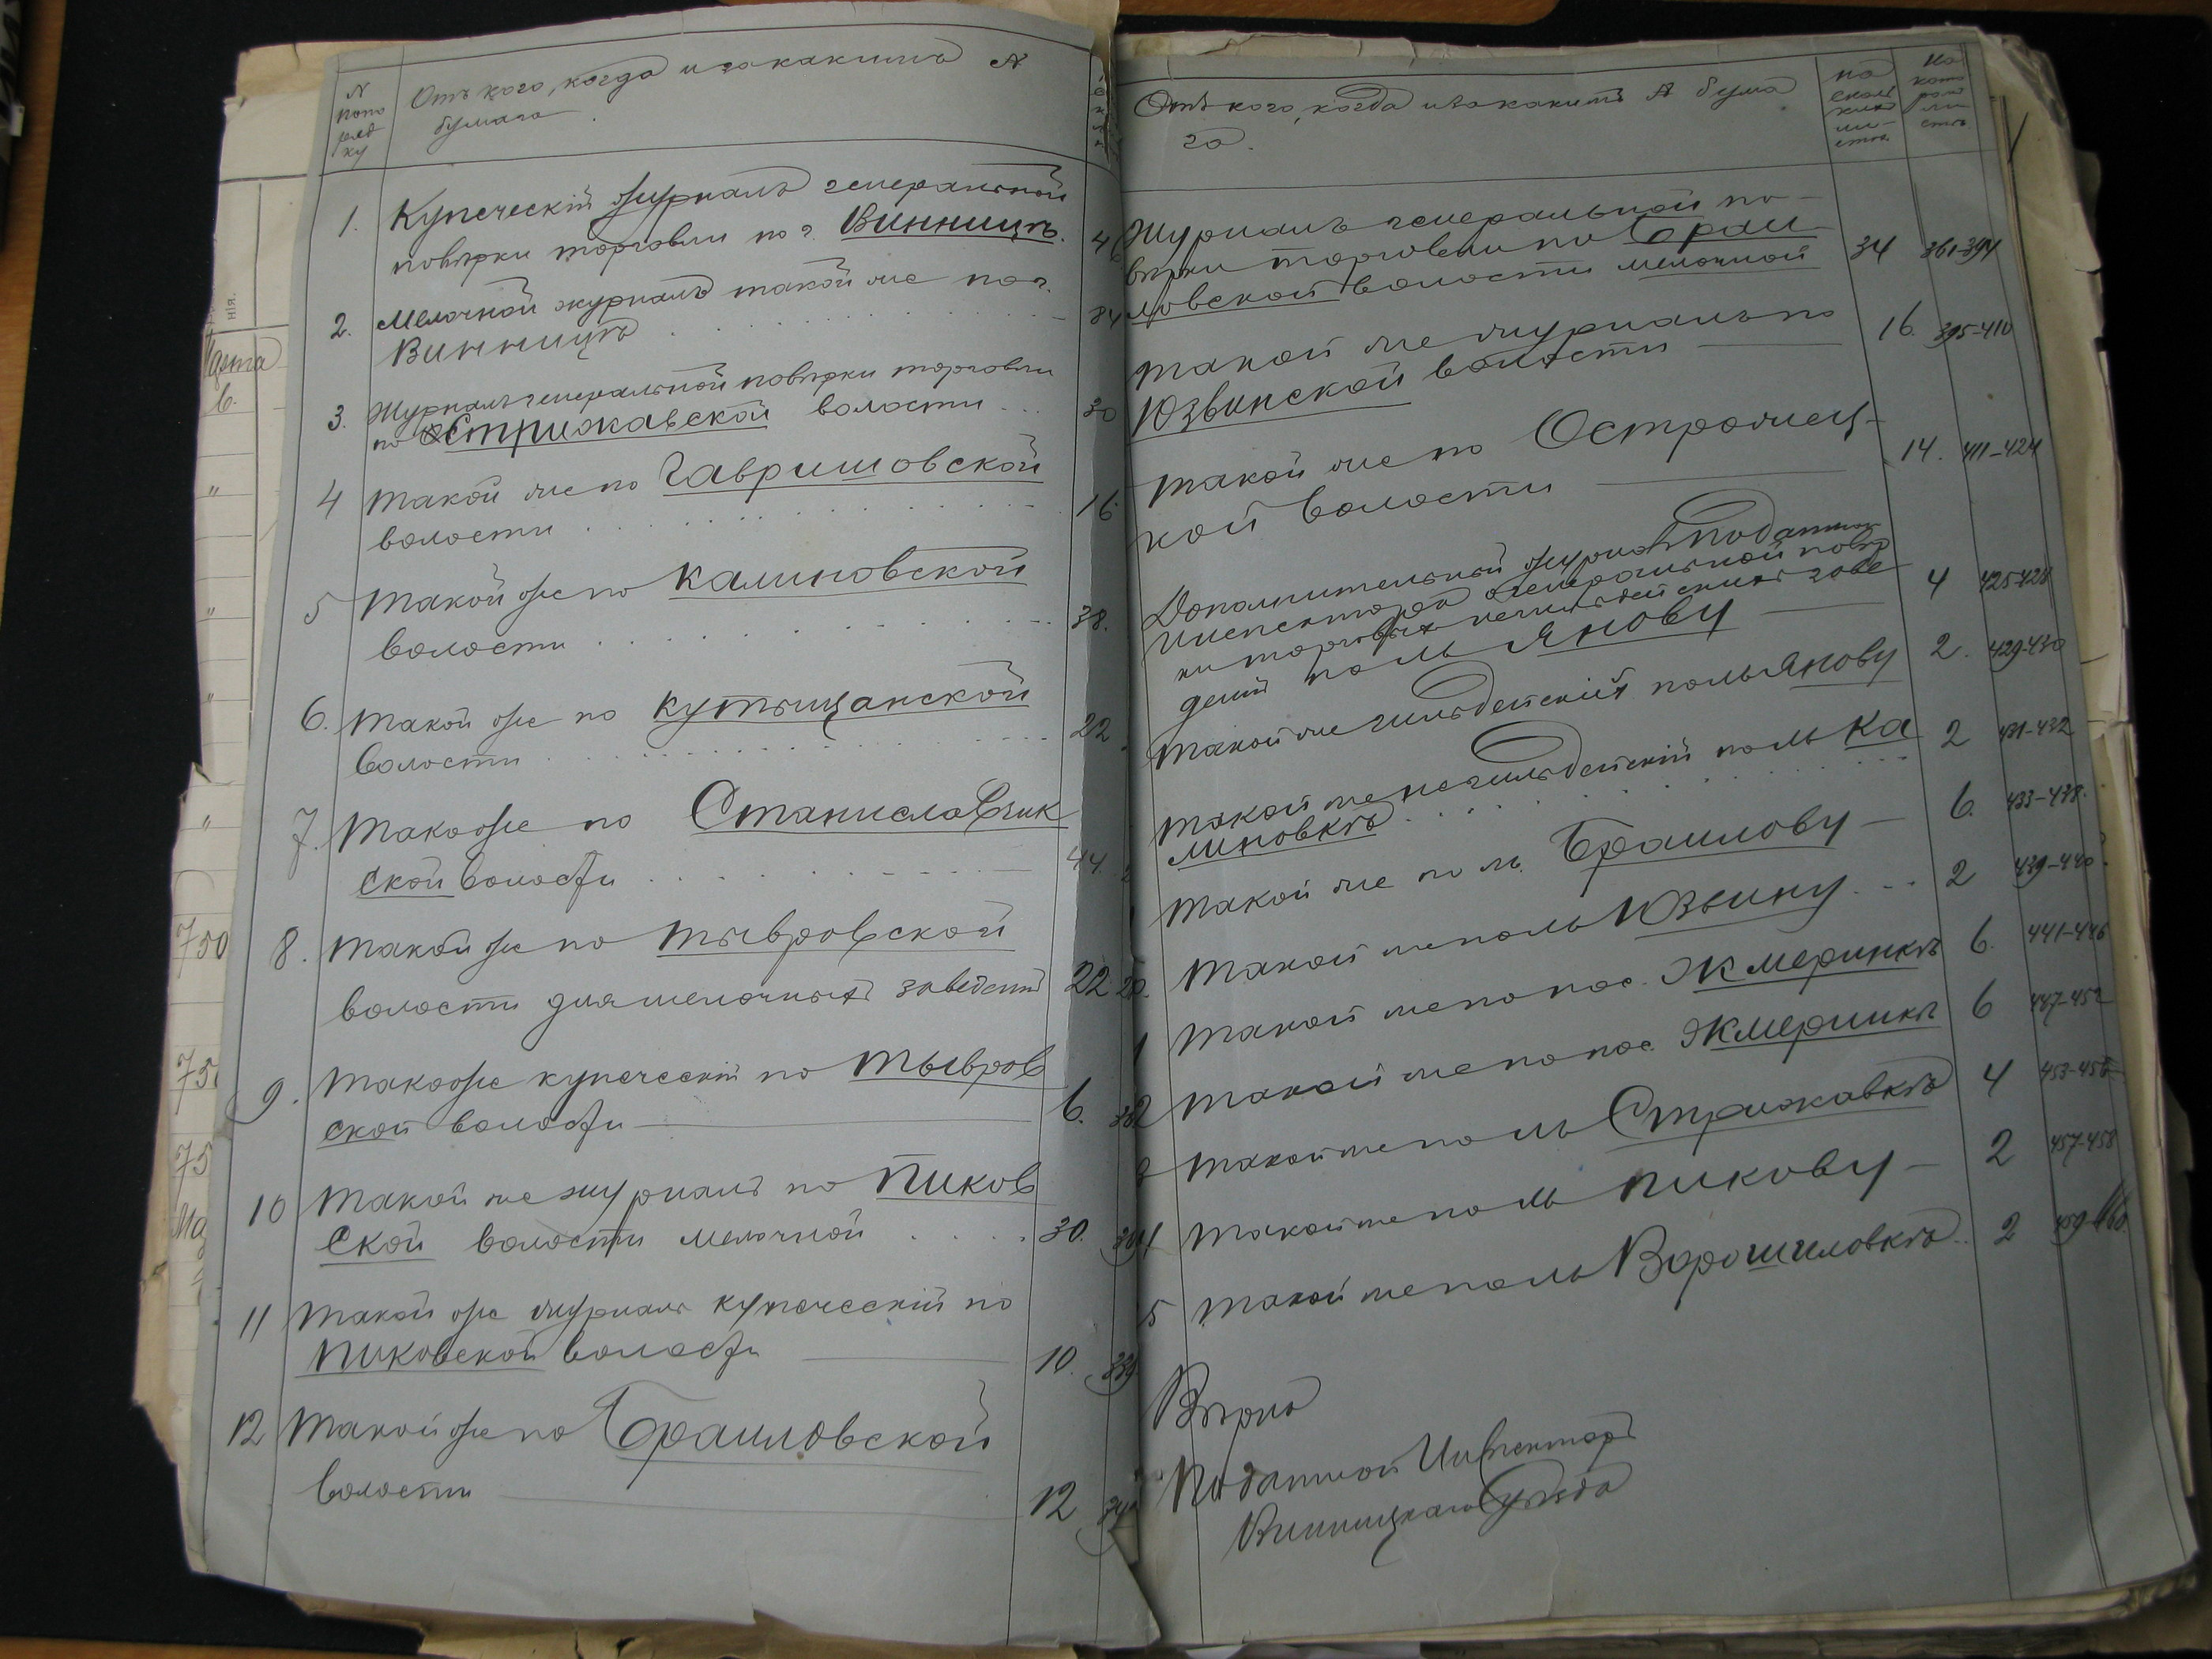 N
попо
ряд
ку
Отъ кого, когда и за какимъ N
бумага
1. Купеческій журналъ генеральной
повѣрки торговли по г. Винницѣ. 46
2. Мелочной журналъ такой же по г.
Винницѣ 84
3. Журналъ генеральной повѣрки торговли
по Стрижавской волости 30
4 Такой же по Гавришовской
волости 16.
5 Такой же по Калиновской
волости 38.
6. Такой же по Кутыщанской
волости 22
7. Такой же по Станиславчик
ской волости 44.
8. Такой же по Тывровской
волости для мелочныхъ заведеній 22
9. Такой же купеческій по Тывров
ской волости 6.
10 Такой же журналъ по Пиков
ской волости мелочной 30.
11 Такой же журналъ купеческій по
Пиковской волости 10.
12 Такой же по Браиловской
волости 12
Отъ кого, когда и за какимъ N бума
га.
на
сколь
кихъ
ли-
стах
На
кото
ром
ли
стѣ
Журналъ генеральной по-
вѣрки торговли по Браи
ловской волости мелочной 34 361-394
Такой же журналъ по
Юзвинской волости 16. 395-410
Такой же по Остромец-
кой волости 14. 411-424
Дополнительный журналъ податного
инспектора генеральной повѣр
ки торговыхъ негильдейскихъ заве
деній по м. Янову 4 425-428
Такой же гильдейскій по м. Янову 2. 429-430
Такой же негильдейскій по м. Ка
линовкѣ 2 431-432
Такой же по м. Браилову 6. 433-438.
Такой же по м. Юзвину 2 439-440
Такой же по пос. Жмеринкѣ 6. 441-446
Такой же по пос. Жмеринкѣ 6 447-452
Такой же по м. Стрижавкѣ 4 453-456
Такой же по м. Пикову 2 457-458
Такой же по м. Ворошиловкѣ 2 459-460
Вѣрно
Податной Инспекторъ
Винницкаго Уѣзда
нія.
750
75
75